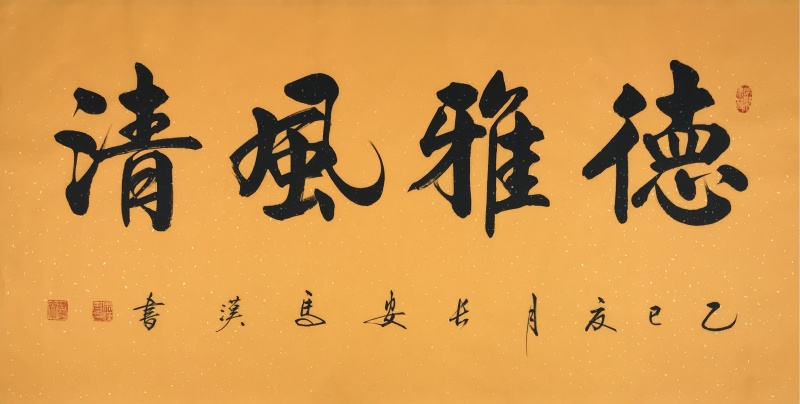 德雅風清
乙巳夏月長安馬漢書